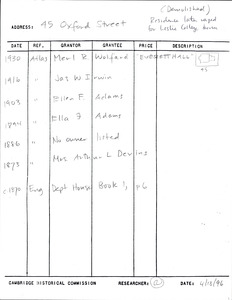 (Demolished)
ADDRESS: 45 Oxford Street Residence later razed
for Leslie College dorm
DATE REF. GRANTOR GRANTEE PRICE DESCRIPTION
1930 Atlas Merl R Wolford "EVERETT HALL"
1916 " Jas W Irwin
1903 " Ellen F. Adams
1894 " Ella F Adams
1886 " No owner listed
1873 " Mrs Arthur L Devens
c1870 Eng Dept House Book 1, p6
CAMBRIDGE HISTORICAL COMMISSION RESEARCHER: DATE: 4/12/96